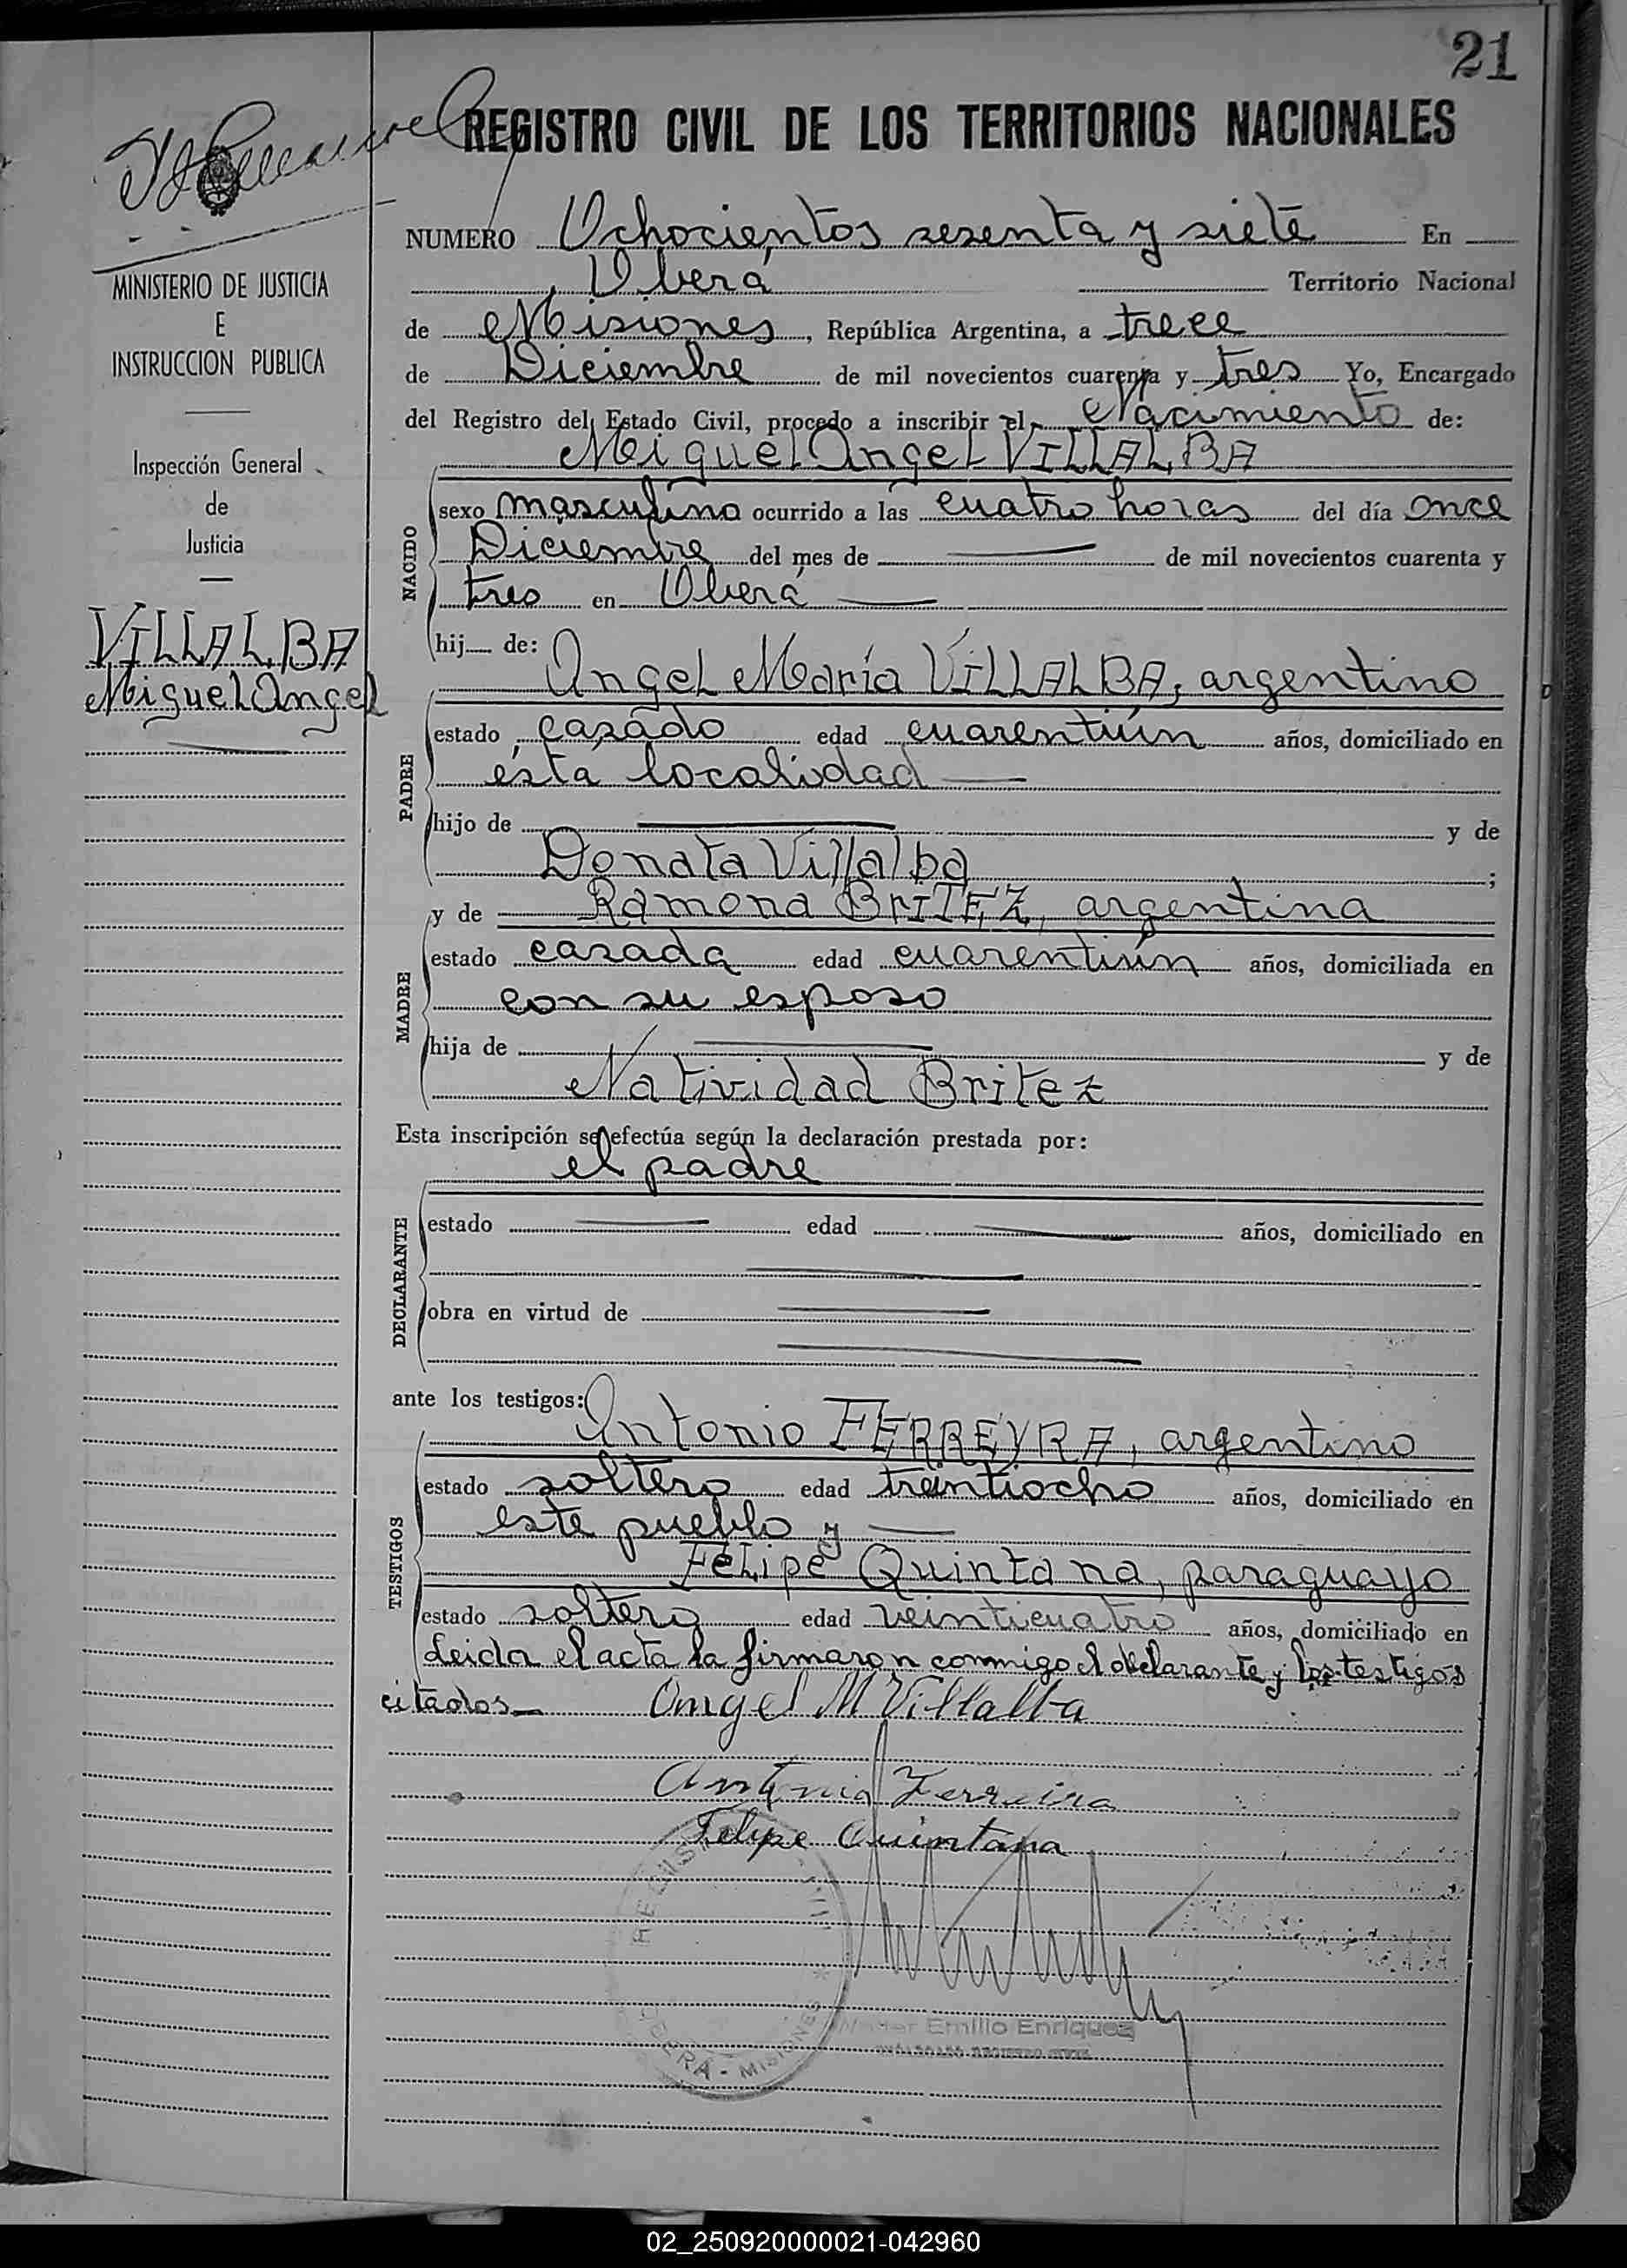 21
REGISTRO CIVIL DE LOS TERRITORIOS NACIONALES
MINISTERIO DE JUSTICIA
E
INSTRUCCION PUBLICA
Inspección General
de
Justicia
VILLALBA
Miguel Angel
NUMERO Ochocientos sesenta y siete En
Oberá Territorio Nacional
de Misiones, República Argentina, a trece
de Diciembre de mil novecientos cuarenta y tres Yo, Encargado
del Registro del Estado Civil, procedo a inscribir el Nacimiento de:
Miguel Angel VILLALBA
NACIDO
sexo masculino ocurrido a las cuatro horas del día once
Diciembre del mes de de mil novecientos cuarenta y
tres en Oberá
hij de:
Angel María VILLALBA, argentino
PADRE
estado casado edad cuarentiún años, domiciliado en
ésta localidad
hijo de y de
Donata Villalba ;
y de Ramona BRITEZ, argentina
MADRE
estado casada edad cuarentiún años, domiciliada en
con su esposo
hija de y de
Natividad Britez
Esta inscripción se efectúa según la declaración prestada por:
el padre
DECLARANTE
estado edad años, domiciliado en
obra en virtud de
ante los testigos:
Antonio FERREYRA, argentino
TESTIGOS
estado soltero edad treintiocho años, domiciliado en
este pueblo y
Felipe Quintana, paraguayo
estado soltero edad veinticuatro años, domiciliado en
Leida el acta la firmaron conmigo el declarante y los testigos
citados
Angel M Villalba
Antonio Ferreira
Felipe Quintana
OBERA - MISIONES
Emilio Enriquez
02_250920000021-042960